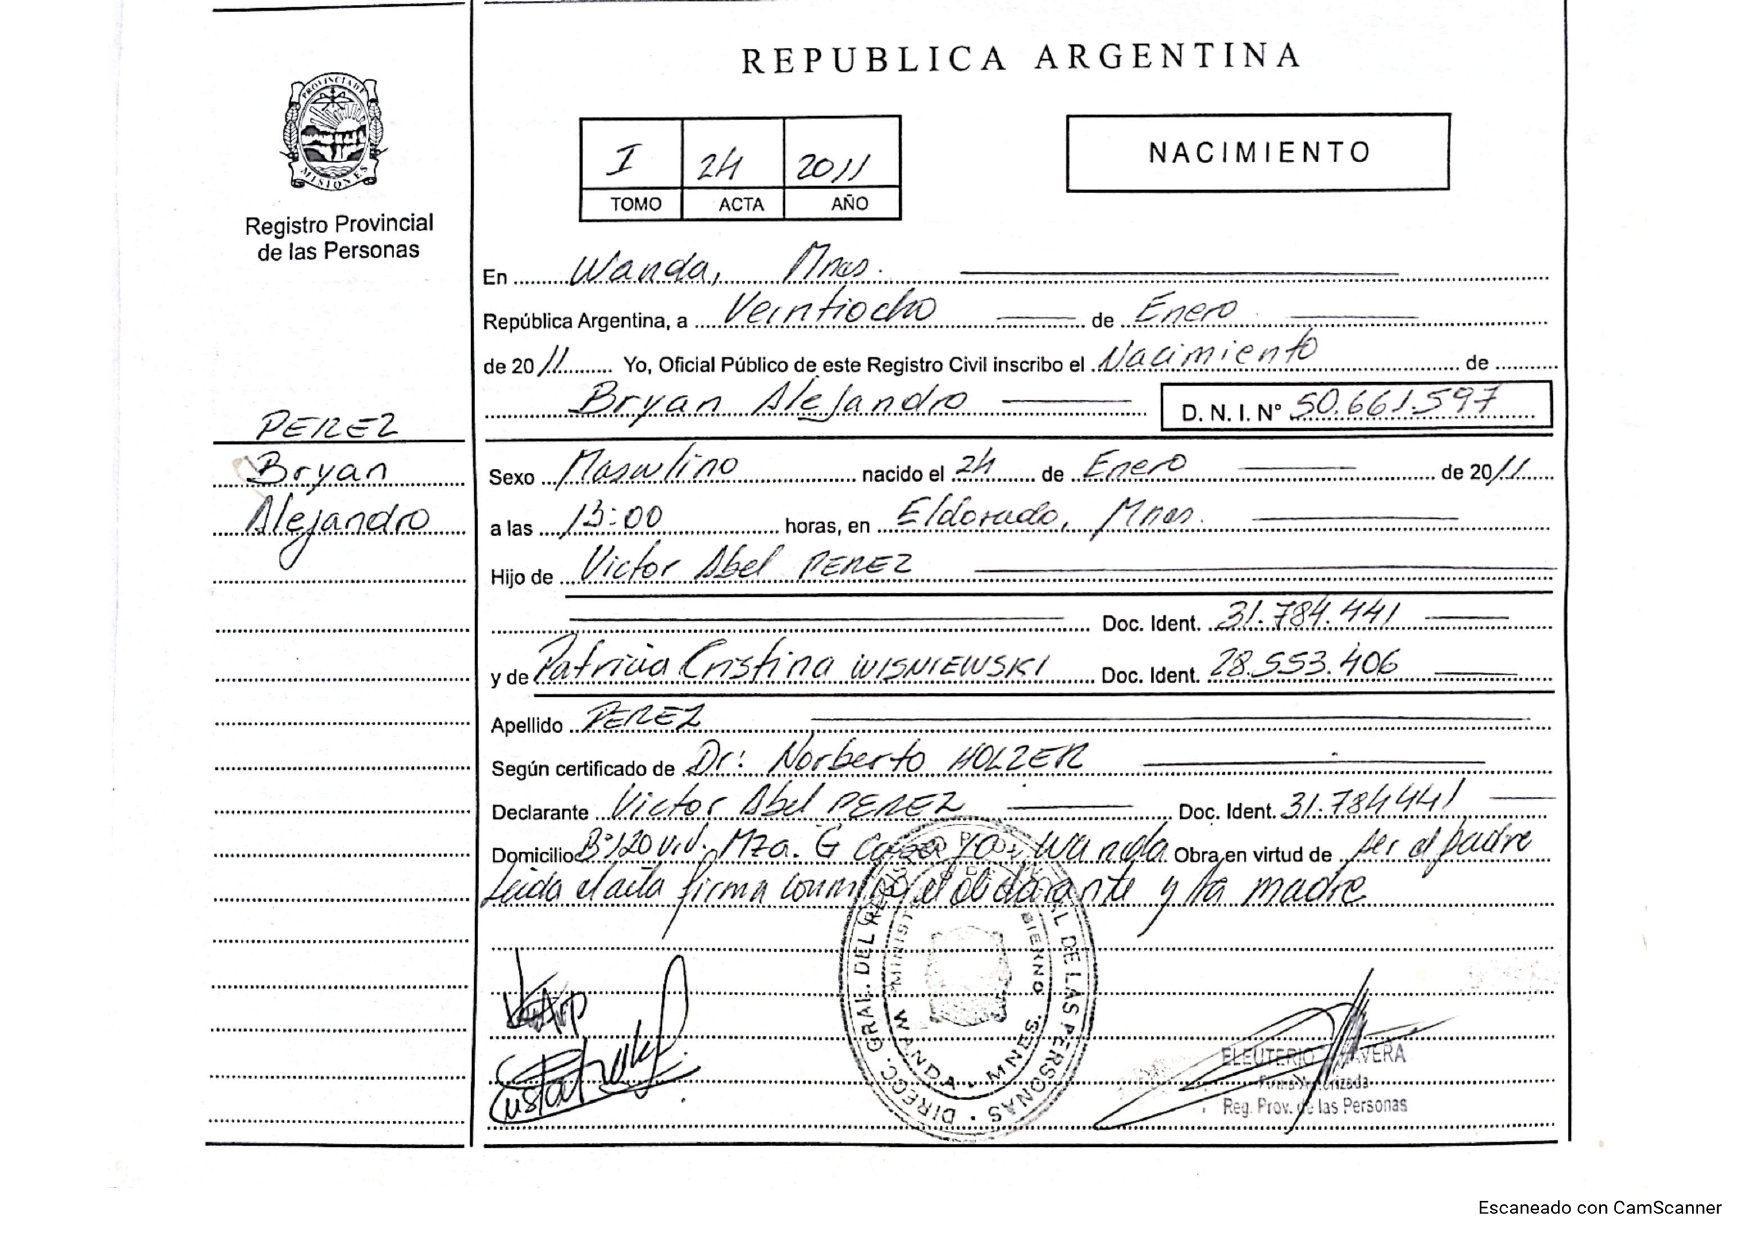 REPUBLICA ARGENTINA
PROVINCIA DE
MISIONES
Registro Provincial
de las Personas
I 24 2011
TOMO ACTA AÑO
NACIMIENTO
En Wanda, Mnes.
República Argentina, a Veintiocho de Enero
de 2011 Yo, Oficial Público de este Registro Civil inscribo el Nacimiento de
Bryan Alejandro D. N. I. Nº 50.661.597
PEREZ
Bryan
Alejandro
Sexo Masculino nacido el 24 de Enero de 2011
a las 13:00 horas, en Eldorado, Mnes.
Hijo de Victor Abel PEREZ
Doc. Ident. 31.784.441
y de Patricia Cristina WISNIEWSKI Doc. Ident. 28.553.406
Apellido PEREZ
Según certificado de Dr: Norberto HOLZER
Declarante Victor Abel PEREZ Doc. Ident. 31.784441
Domicilio Bº 120 viv. Mza. G casa Wanda Obra en virtud de ser el padre
leida el acta firma conmigo el declarante y la madre
DIRECC. GRAL. DEL REGISTRO DE LAS PERSONAS
WANDA - MNES.
ELEUTERIO
Firma Autorizada
Reg. Prov. de las Personas
Escaneado con CamScanner